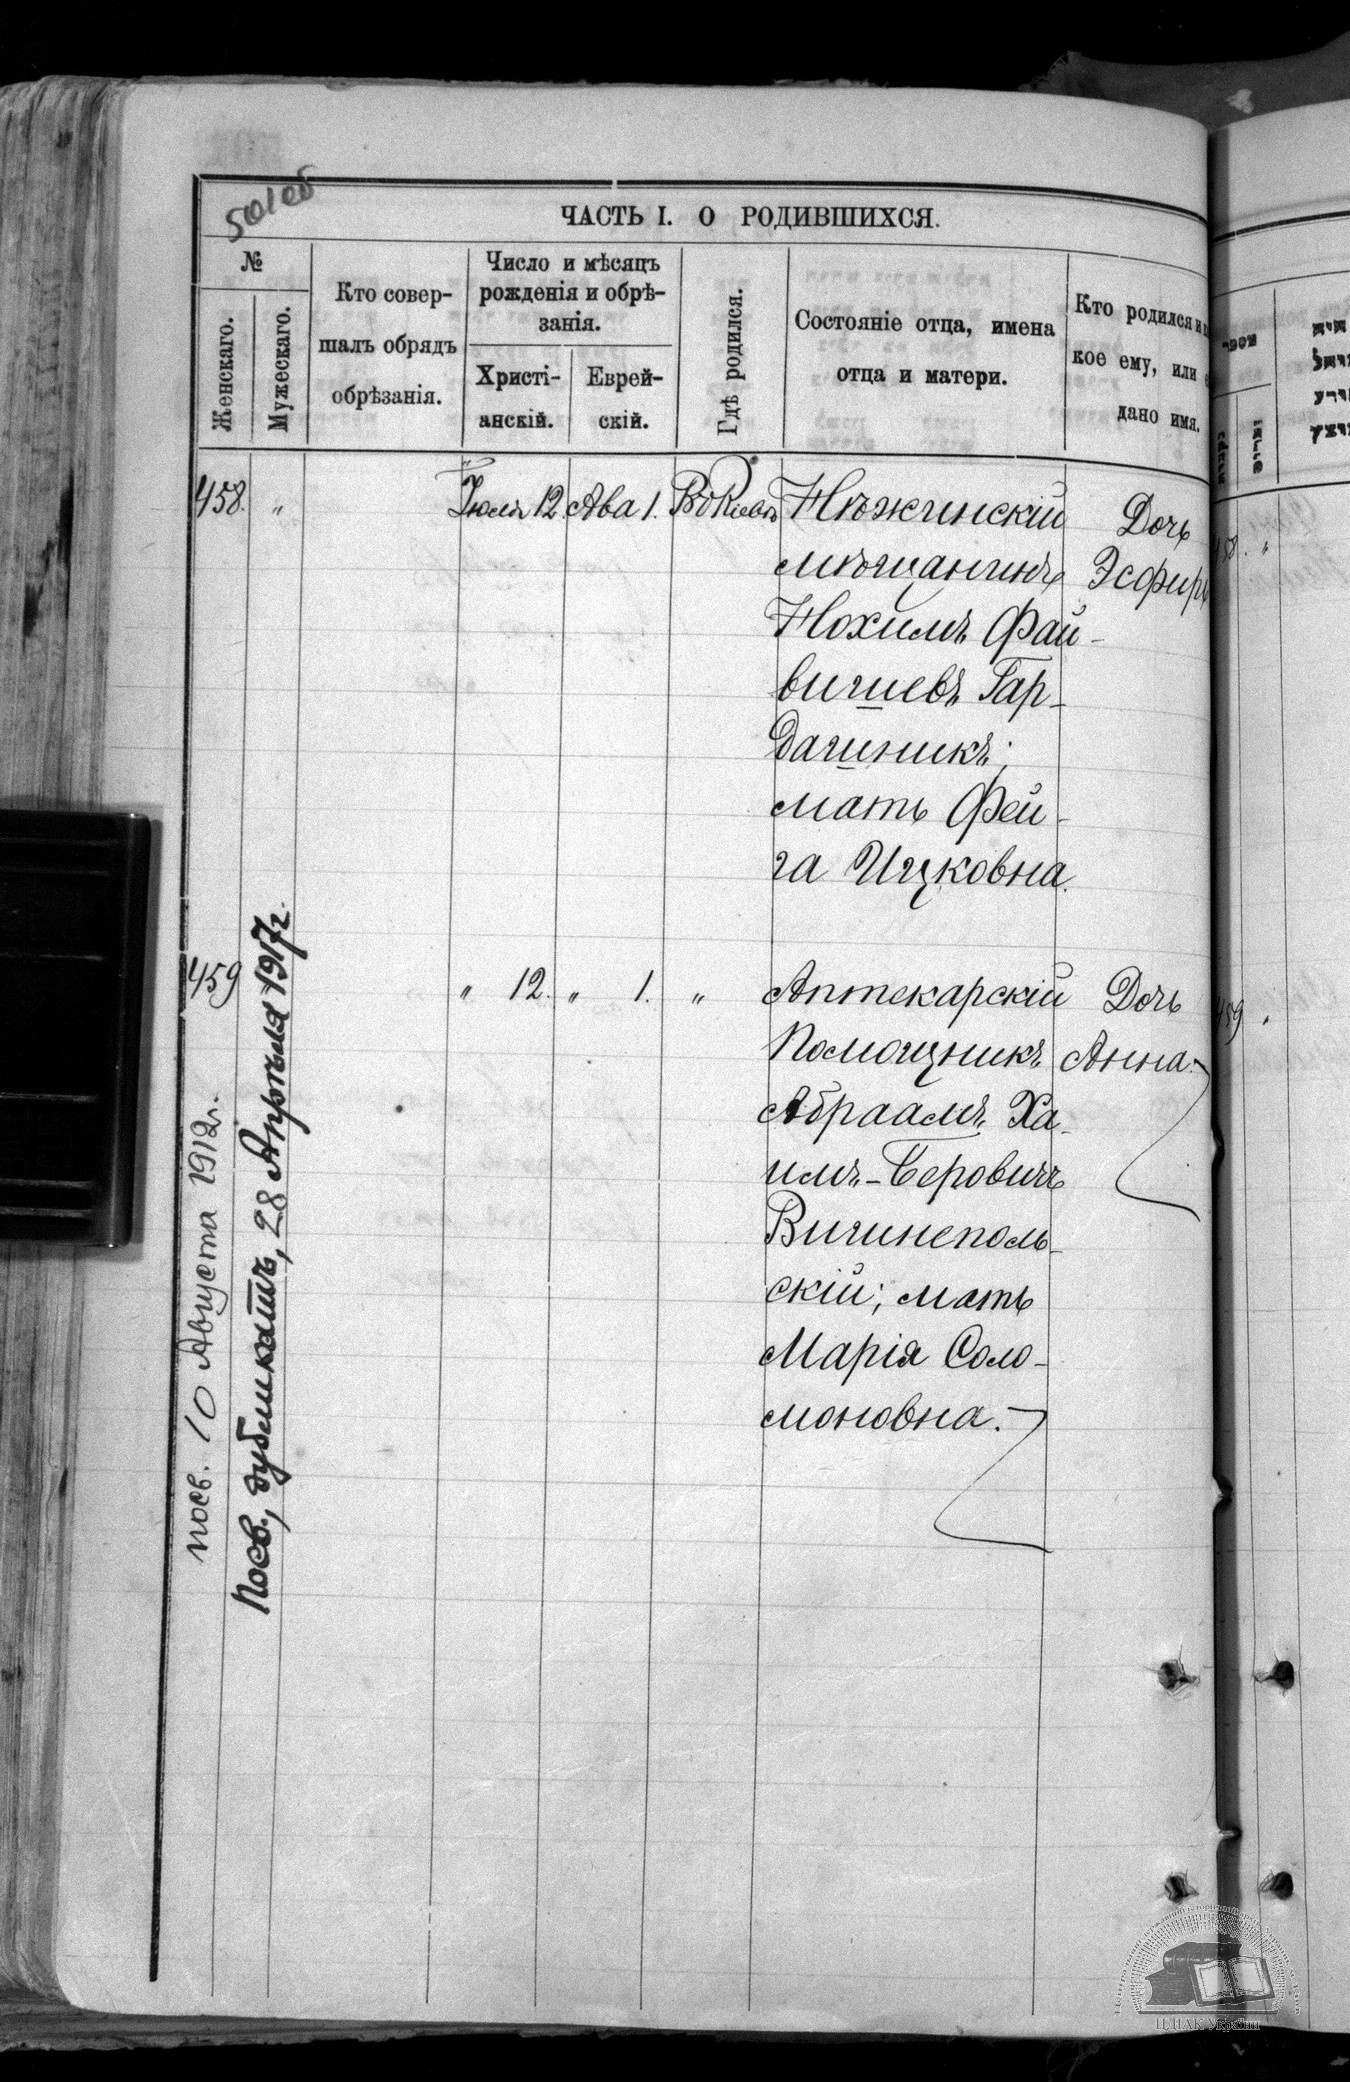 501 об
ЧАСТЬ I. О РОДИВШИХСЯ.
№
Женскаго.
Мужескаго.
Кто совер-
шалъ обрядъ
обрѣзанія.
Число и мѣсяцъ
рожденія и обрѣ-
занія.
Христі-
анскій.
Еврей-
скій.
Гдѣ родился.
Состояніе отца, имена
отца и матери.
Кто родился и
кое ему, или
дано имя.
458. " Іюля 12. Ава 1. Въ Кіевѣ Нѣжинскій Дочь
мѣщанинъ Эсфирь
Нохимъ Фай-
вишевъ Гар-
дашникъ;
мать Фей-
га Ицковна.
459 " 12. " 1. " Аптекарскій Дочь
Помощникъ Анна.
Абраамъ Ха-
имъ-Беровичъ
Вишнеполь-
скій; мать
Марія Соло-
моновна.
посв. 10 Августа 1912 г.
Посв., дубликатъ, 28 Апрѣля 1917 г.
458. "
459 "
ЦДІАК України